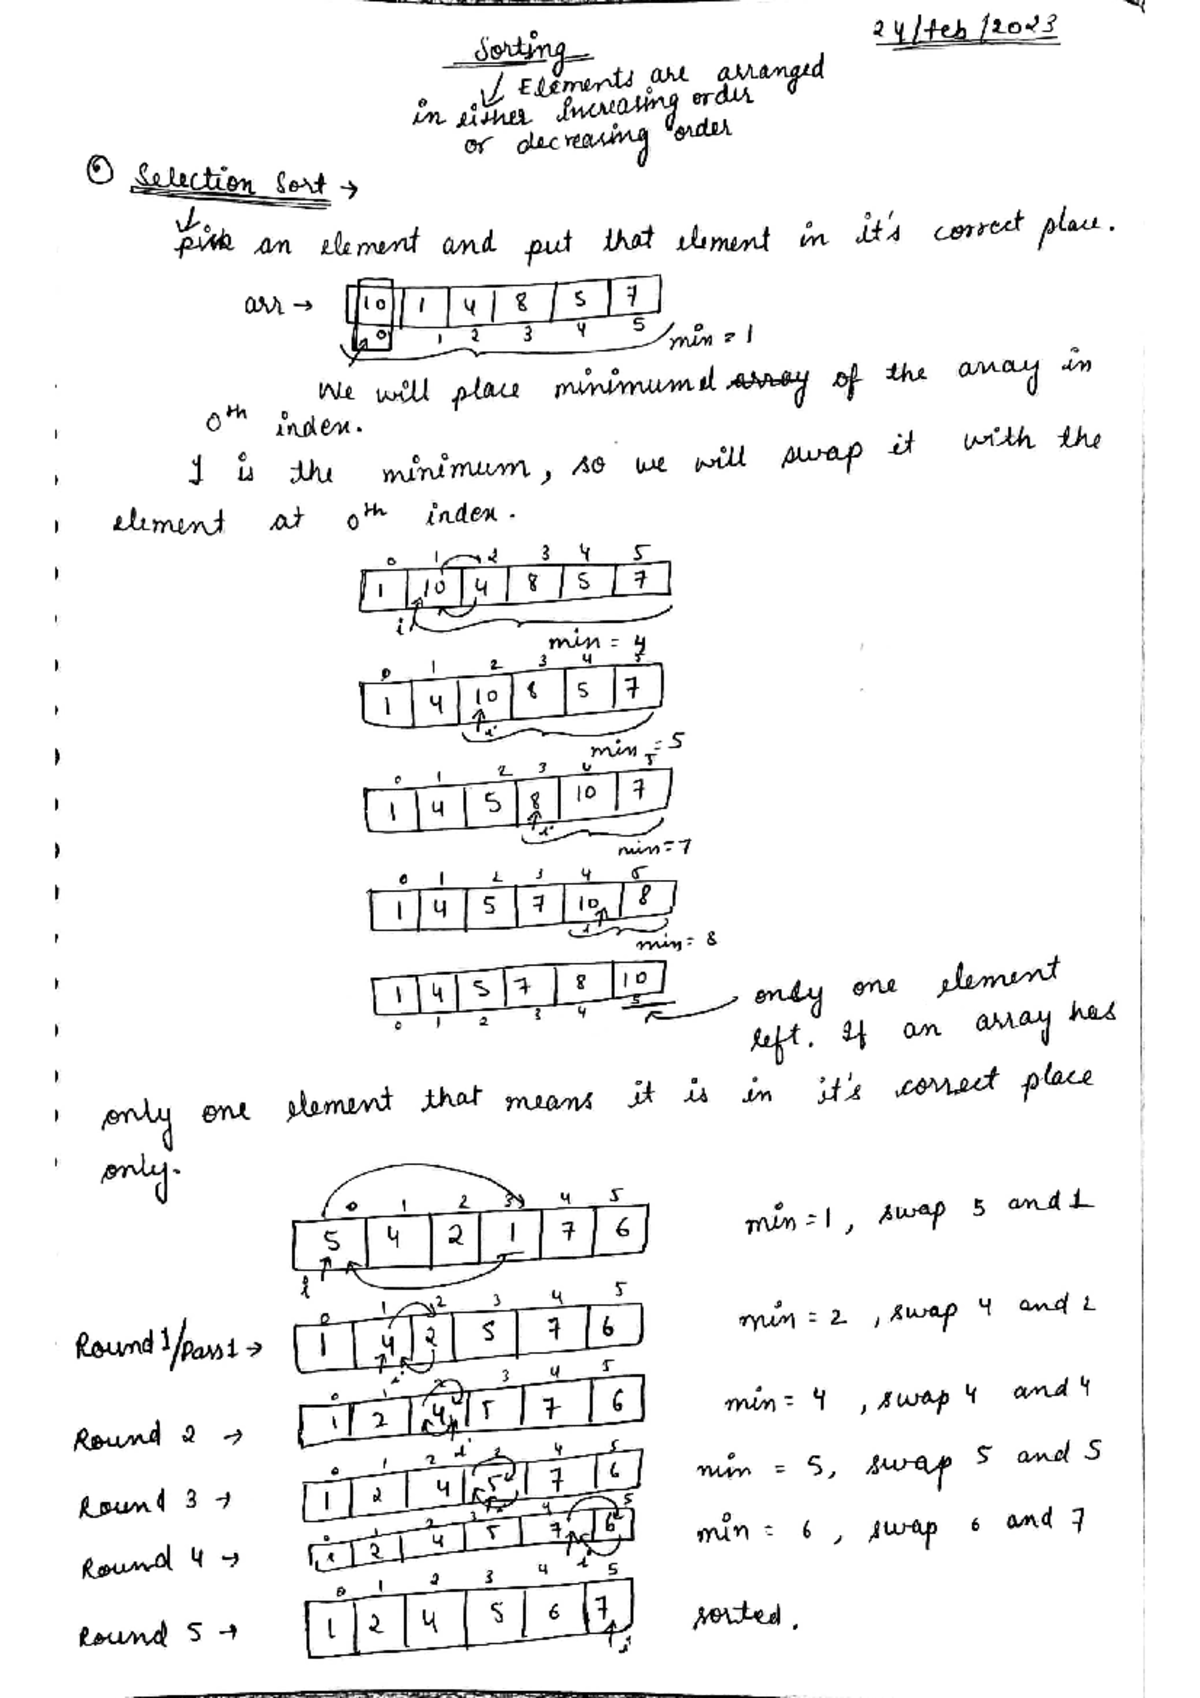 24/feb/2023
Sorting
↓ Elements are arranged
in either Increasing order
or decreasing order
Selection Sort →
pick an element and put that element in it's correct place.
arr → 10 1 4 8 5 7
0 1 2 3 4 5
min = 1
We will place minimum el array of the array in
0th index.
1 is the minimum, so we will swap it with the
element at 0th index.
0 1 2 3 4 5
1 10 4 8 5 7
i
min = 4
0 1 2 3 4 5
1 4 10 8 5 7
i
min = 5
0 1 2 3 4 5
1 4 5 8 10 7
i
min = 7
0 1 2 3 4 5
1 4 5 7 10 8
i
min = 8
1 4 5 7 8 10
0 1 2 3 4 5
only one element
left. If an array has
only one element that means it is in it's correct place
only.
0 1 2 3 4 5
5 4 2 1 7 6 min = 1, swap 5 and 1
i
0 1 2 3 4 5
Round 1/Pass 1 → 1 4 2 5 7 6 min = 2, swap 4 and 2
i
0 1 2 3 4 5
Round 2 → 1 2 4 5 7 6 min = 4, swap 4 and 4
i
0 1 2 3 4 5
Round 3 → 1 2 4 5 7 6 min = 5, swap 5 and 5
i
0 1 2 3 4 5
Round 4 → 1 2 4 5 7 6 min = 6, swap 6 and 7
i
0 1 2 3 4 5
Round 5 → 1 2 4 5 6 7 sorted.
i